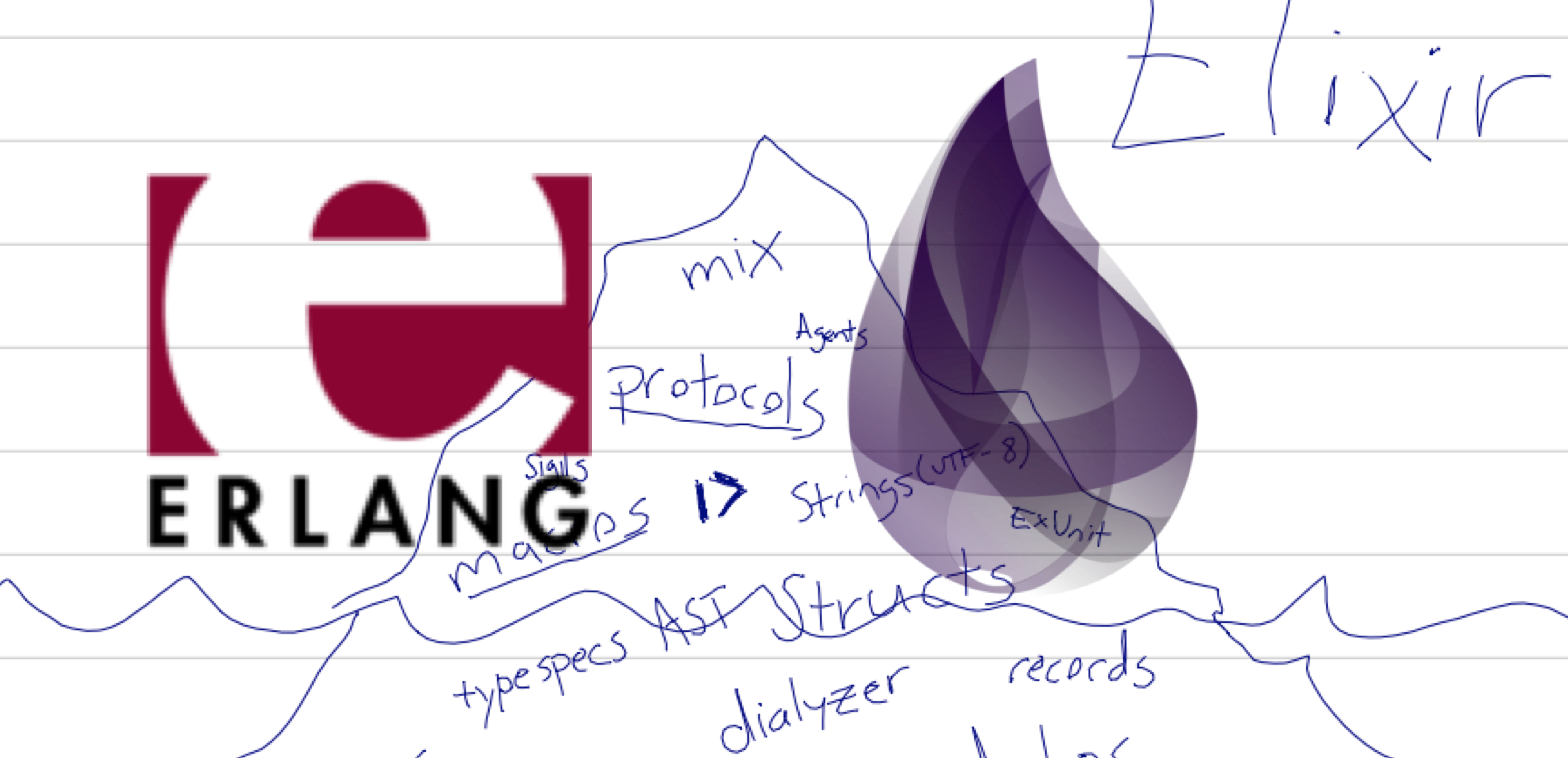 Elixir
mix
Agents
protocols
Sigils
ERLANG
macros |> Strings (UTF-8)
ExUnit
typespecs AST Structs
dialyzer records